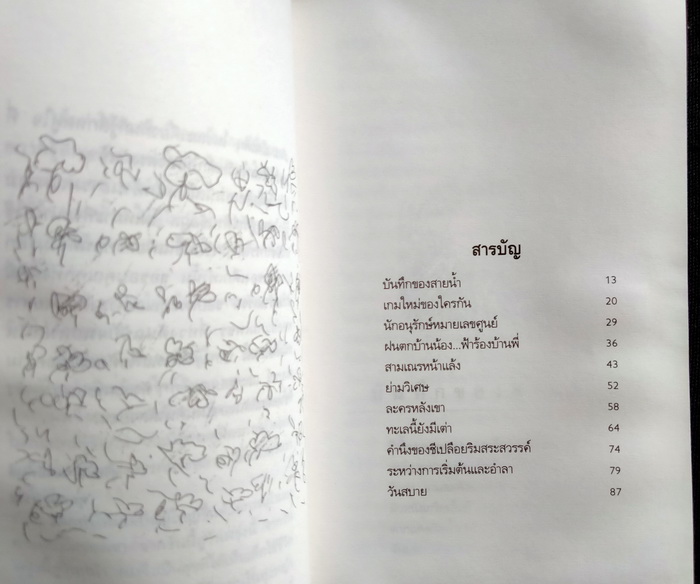 สารบัญ
บันทึกของสายน้ำ 13
เกมใหม่ของใครกัน 20
นักอนุรักษ์หมายเลขศูนย์ 29
ฝนตกบ้านน้อง...ฟ้าร้องบ้านพี่ 36
สามเณรหน้าแล้ง 43
ย่ามวิเศษ 52
ละครหลังเขา 58
ทะเลนี้ยังมีเต่า 64
คำนึงของชีเปลือยริมสระสวรรค์ 74
ระหว่างการเริ่มต้นและอำลา 79
วันสบาย 87